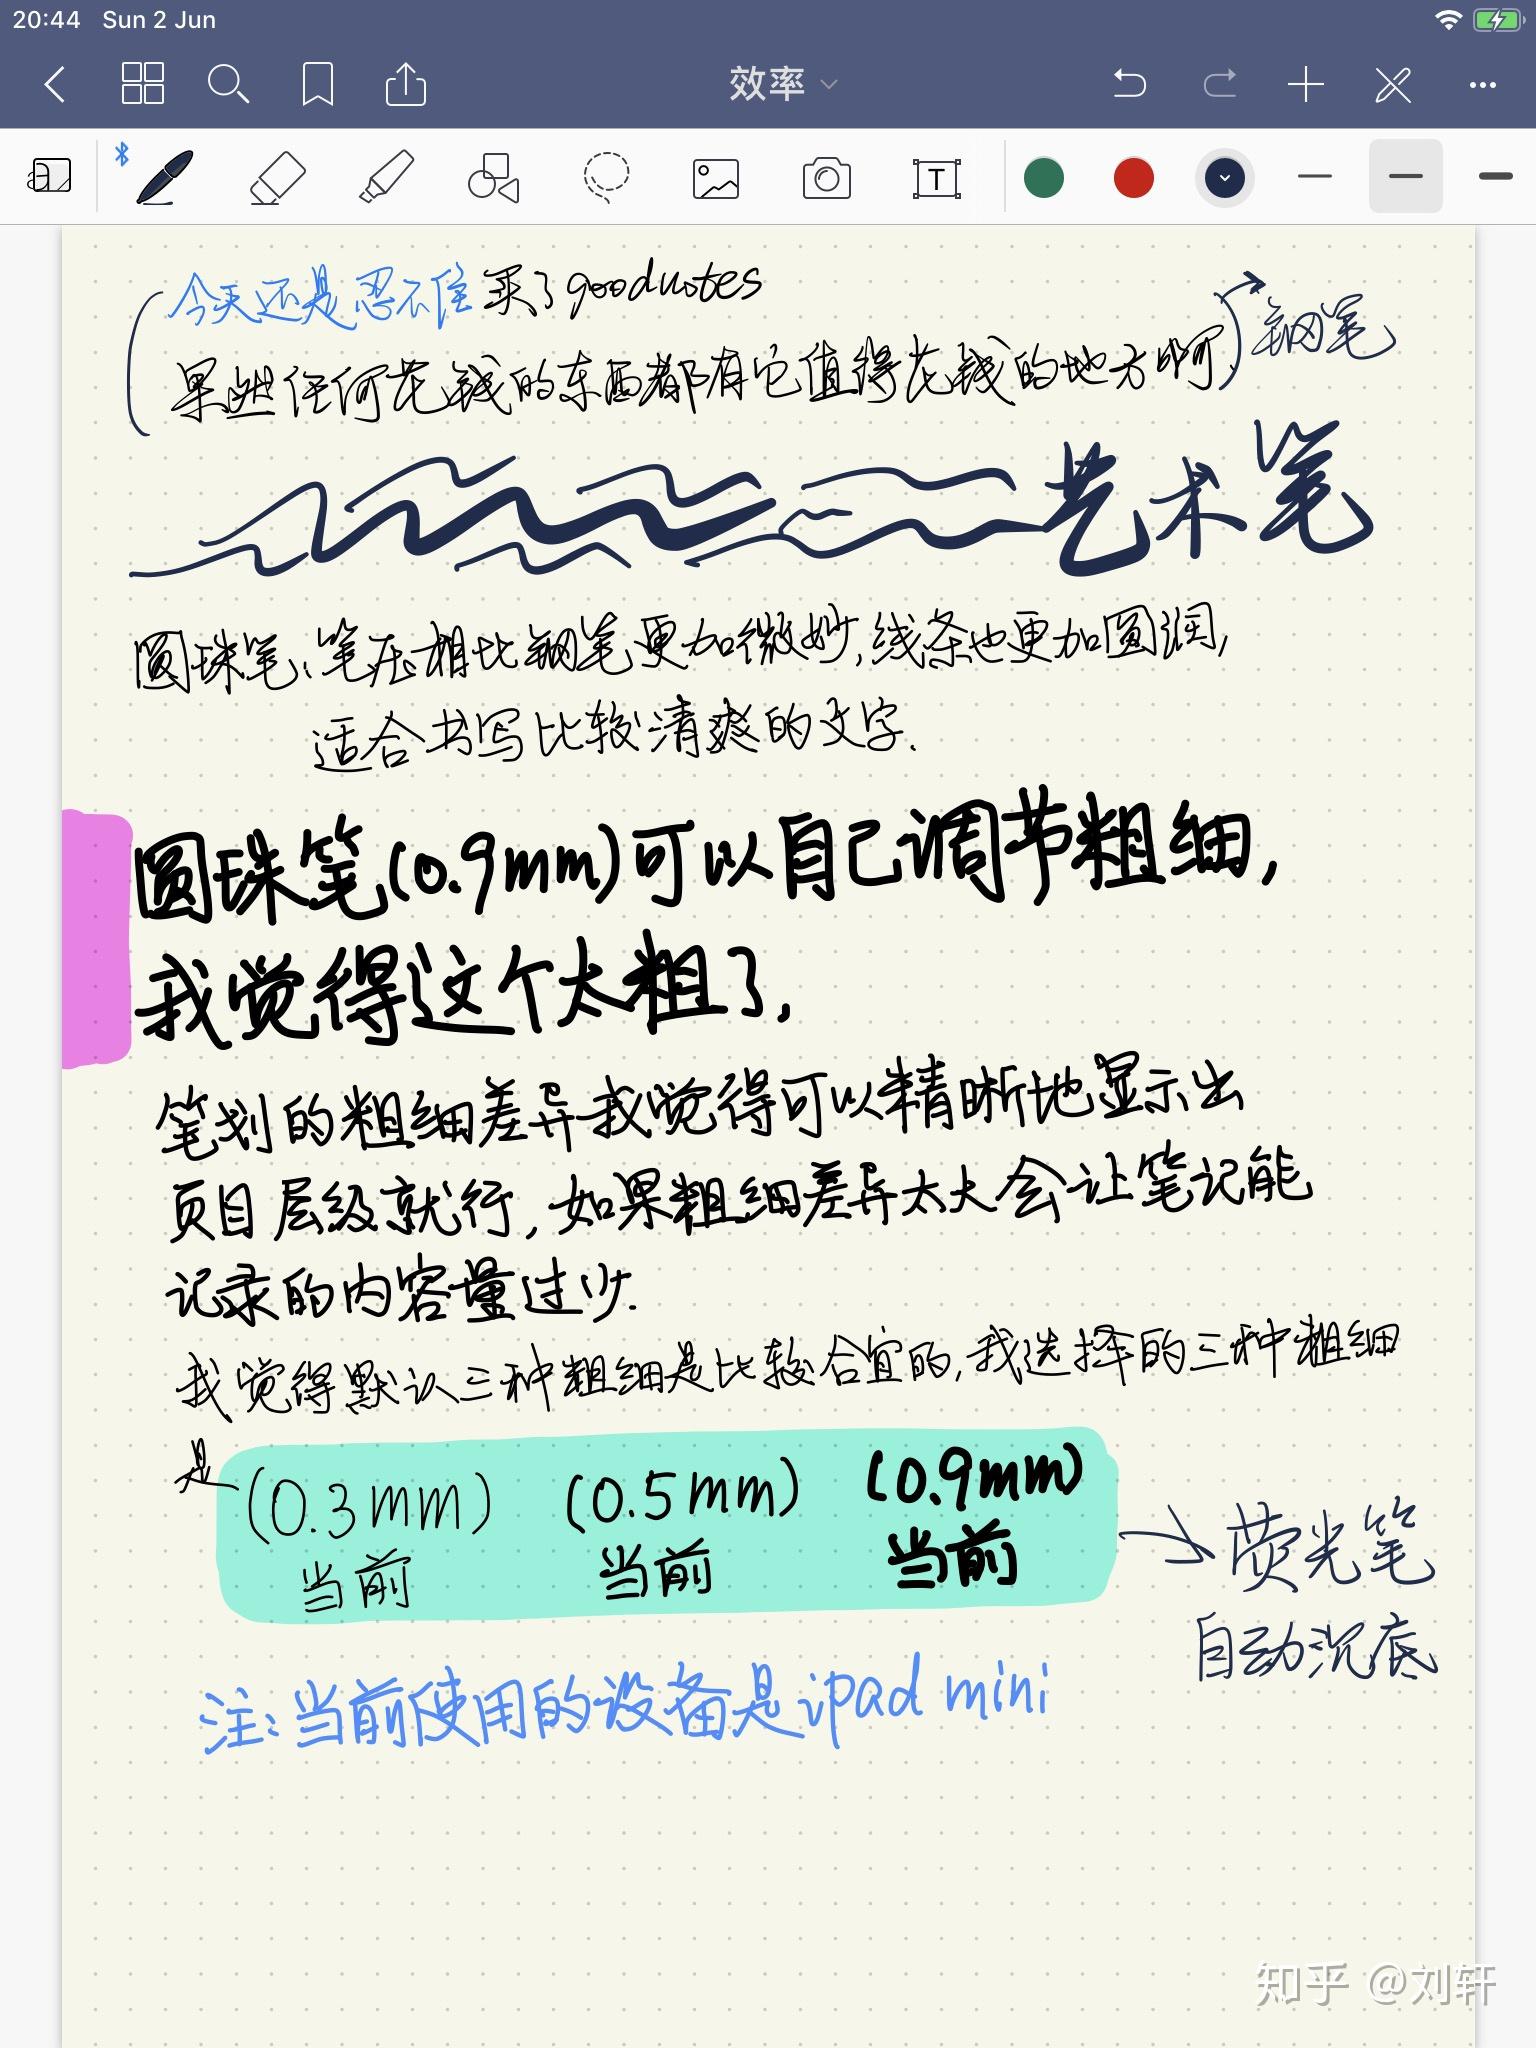 20:44 Sun 2 Jun
效率
T
今天还是忍不住买了goodnotes
果然任何花钱的东西都有它值得花钱的地方啊.
钢笔
艺术笔
圆珠笔、笔压相比钢笔更加微妙,线条也更加圆润,
适合书写比较清爽的文字.
圆珠笔(0.9mm)可以自己调节粗细,
我觉得这个太粗了,
笔划的粗细差异我觉得可以精晰地显示出
页目层级就行,如果粗细差异太大会让笔记能
记录的内容量过少.
我觉得默认三种粗细是比较合宜的,我选择的三种粗细
是
(0.3mm) (0.5mm) (0.9mm)
当前 当前 当前
荧光笔
自动沉底
注:当前使用的设备是ipad mini
知乎 @刘轩